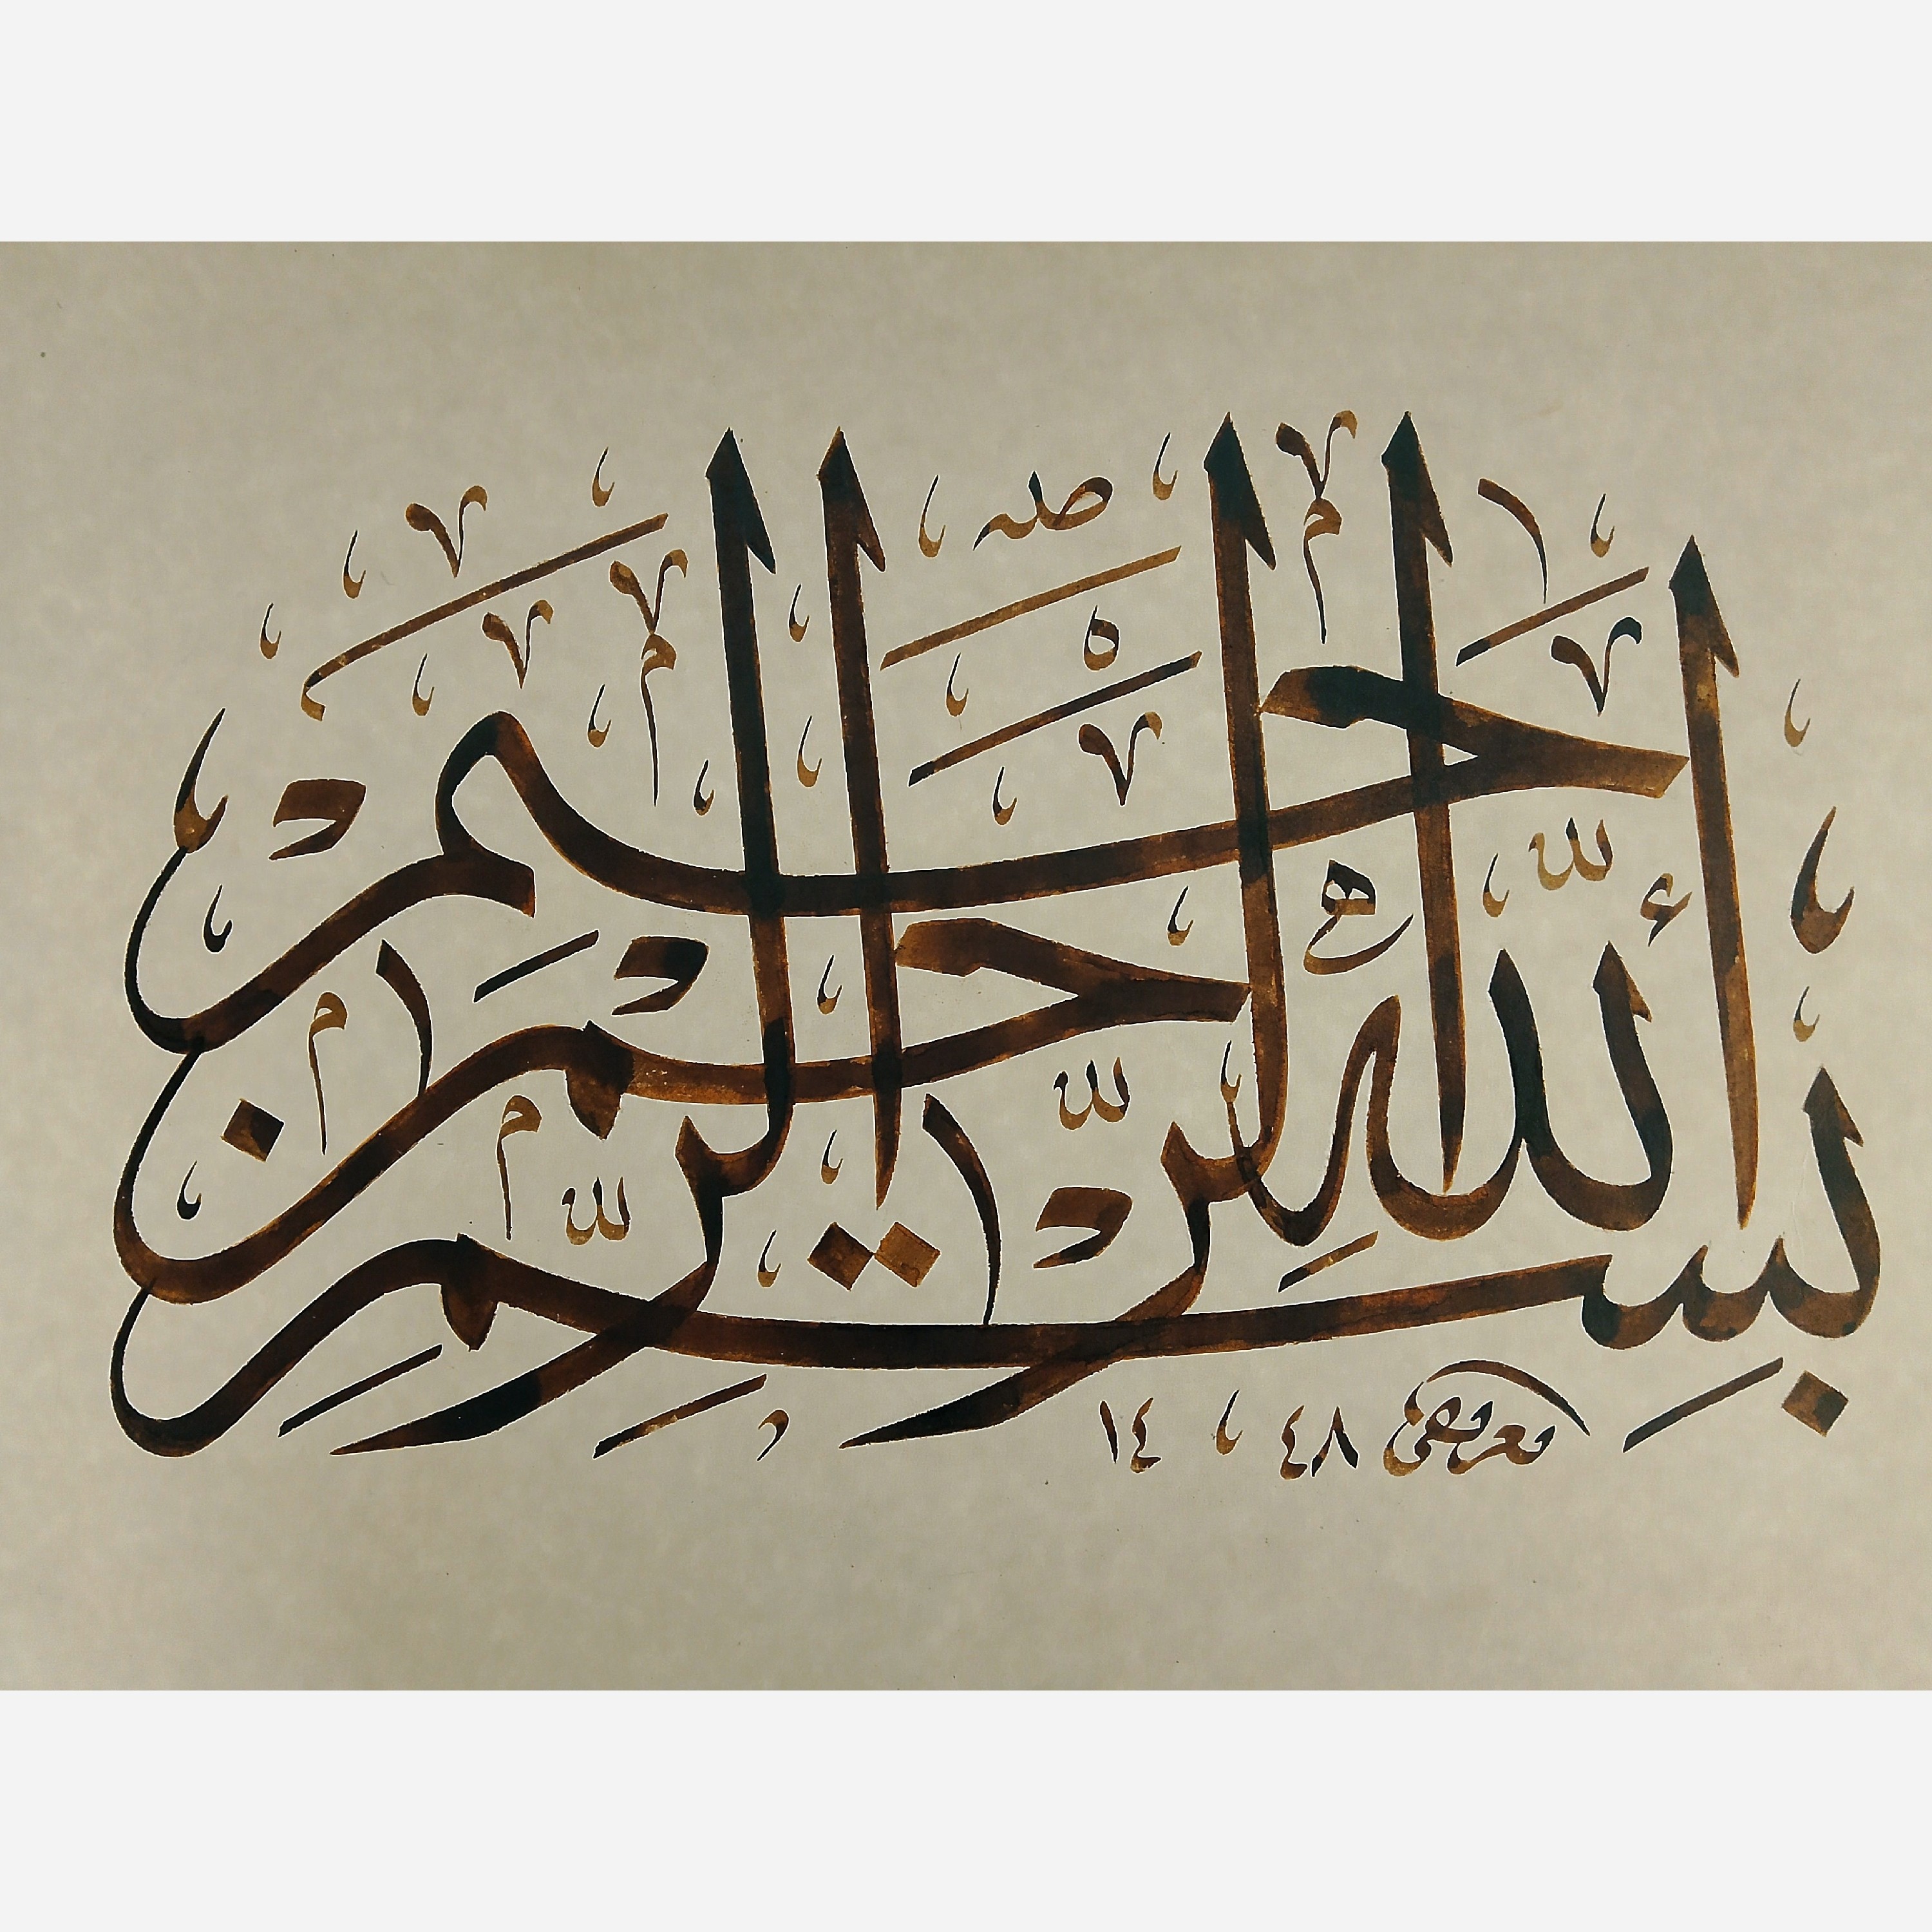 بسم الله الرحمن الرحيم
١٤٤٨